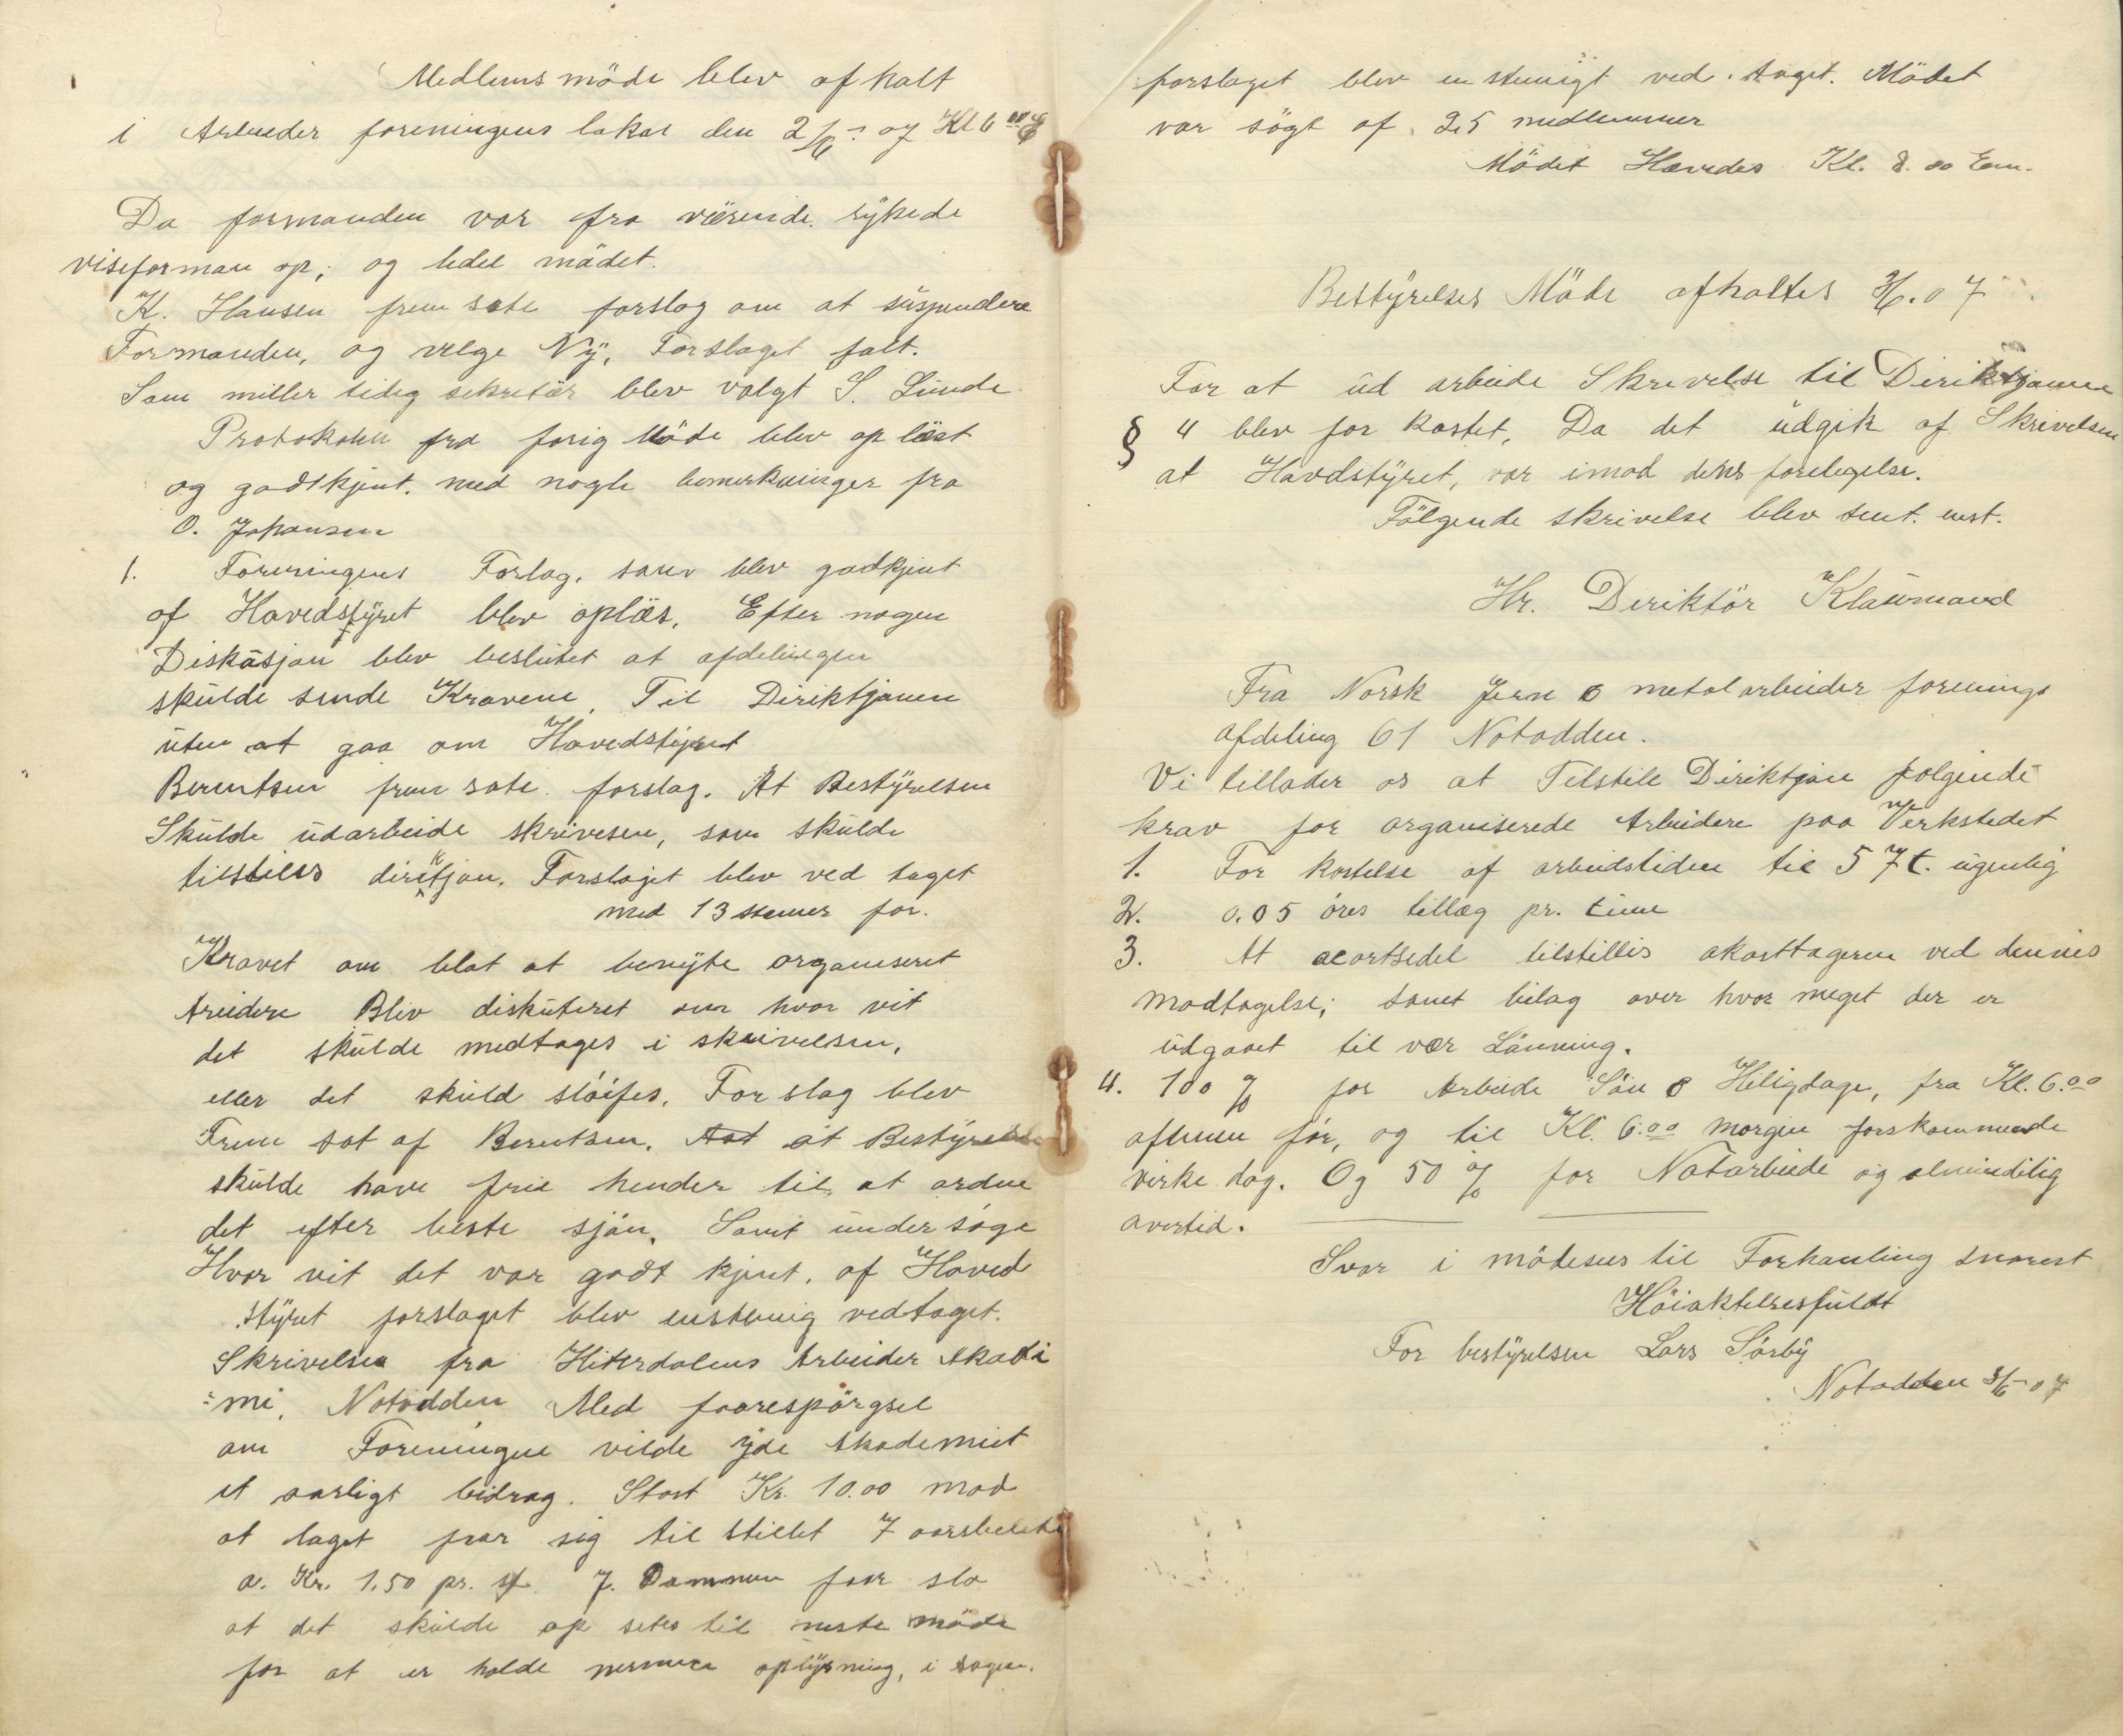 Medlems möde blev afholt
i Arbeider foreningens lokal den 2/6 - 07 Kl 6 00 E
Da formanden var fra værende. rykede
viseforman op, og ledet mödet.
K. Hansen frem sate forslog om at suspendere
Formanden, og velge Ny, Forslaget falt.
Som miller tidig sekretær blev valgt S. Lunde
Protokolen fra forig Möde blev op læst
og godtkjent. med nogle bemerkninger fra
O. Johansen
1. Foreningens Forlag. som blev godkjent
af Hovedstyret blev oplæs. Efter nogen
Diskusjon blev beslutet at afdelingen
skulde sende Kravene. Til Diriktjonen
uten at gaa om Hovedstyret
Berentsen frem sate forslag. At Bestyrelsen
Skulde udarbeide skrivesen, som skulde
tilstiles diriktjon. Forslaget blev ved taget
med 13 stemer for.
Kravet om blot at benyte organiseret
Areidere Blev diskuteret om hvor vit
det skulde medtages i skrivelsen,
eller det skuld slöifes. Forslag blev
Frem sat af Berentsen. At at Bestyrelsen
skulde have frie hender til at ordne
det efter beste sjön. Samt under söge
Hvor vit det var godt kjent. af Hoved
styret forslaget blev enstemig vedtaget.
Skrivelse fra Hiterdalens Arbeider Akadi
=mi, Notodden Med foorespörgsel
om Foreningen vilde yde Akademiet
et aarligt bidrag. Stort Kr. 10.00 mod
at laget faar sig til stillet 7 aarsbilete
a. Kr. 1.50 pr. st. J. Dammen foor slo
at det skulde op setes til neste möde
for at er holde nermere oplysning, i sagen.
forslaget blev en stemigt ved. taget. Mödet
var sögt af 25 medlemmer
Mödet Hævedes Kl. 8.00 Em.
Bestyrelses Möde afholtes 3/6.07
For at ud arbeide Skrivelse til Diriktjonen
§ 4 blev for kastet, Da det udgik af Skrivelsen
at Havdstyret, var imod dens forelegelse.
Fölgende skrivelse blev sent. enst.
Hr. Diriktör Klaumand
Fra Norsk Jern o metal arbeider forenings
afdeling 61 Notodden.
Vi tillader os at Tilstile Diriktjon folgende
krav for organiserede Arbeidere paa Verkstedet
1. For kortelse af arbeidstiden til 57 t. ugenlig
2. 0.05 öres tillæg pr. time
3. At acortsedel tilstilles akorttageren ved dennes
modtagelse; samt bilag over hvor meget der er
udgaaet til vær Lönning.
4. 100 % for Arbeide Sön o Heligdage, fra Kl. 6.00
aftenen för, og til Kl. 6.00 morgen forskommende
virke dag. Og 50 % for Natarbeide og almindelig
overtid.
Svar i mödesees til Forhanling snarest
Höiaktelsesfuldt
For bestyrelsen Lars Sörby
Notodden 3/6-07